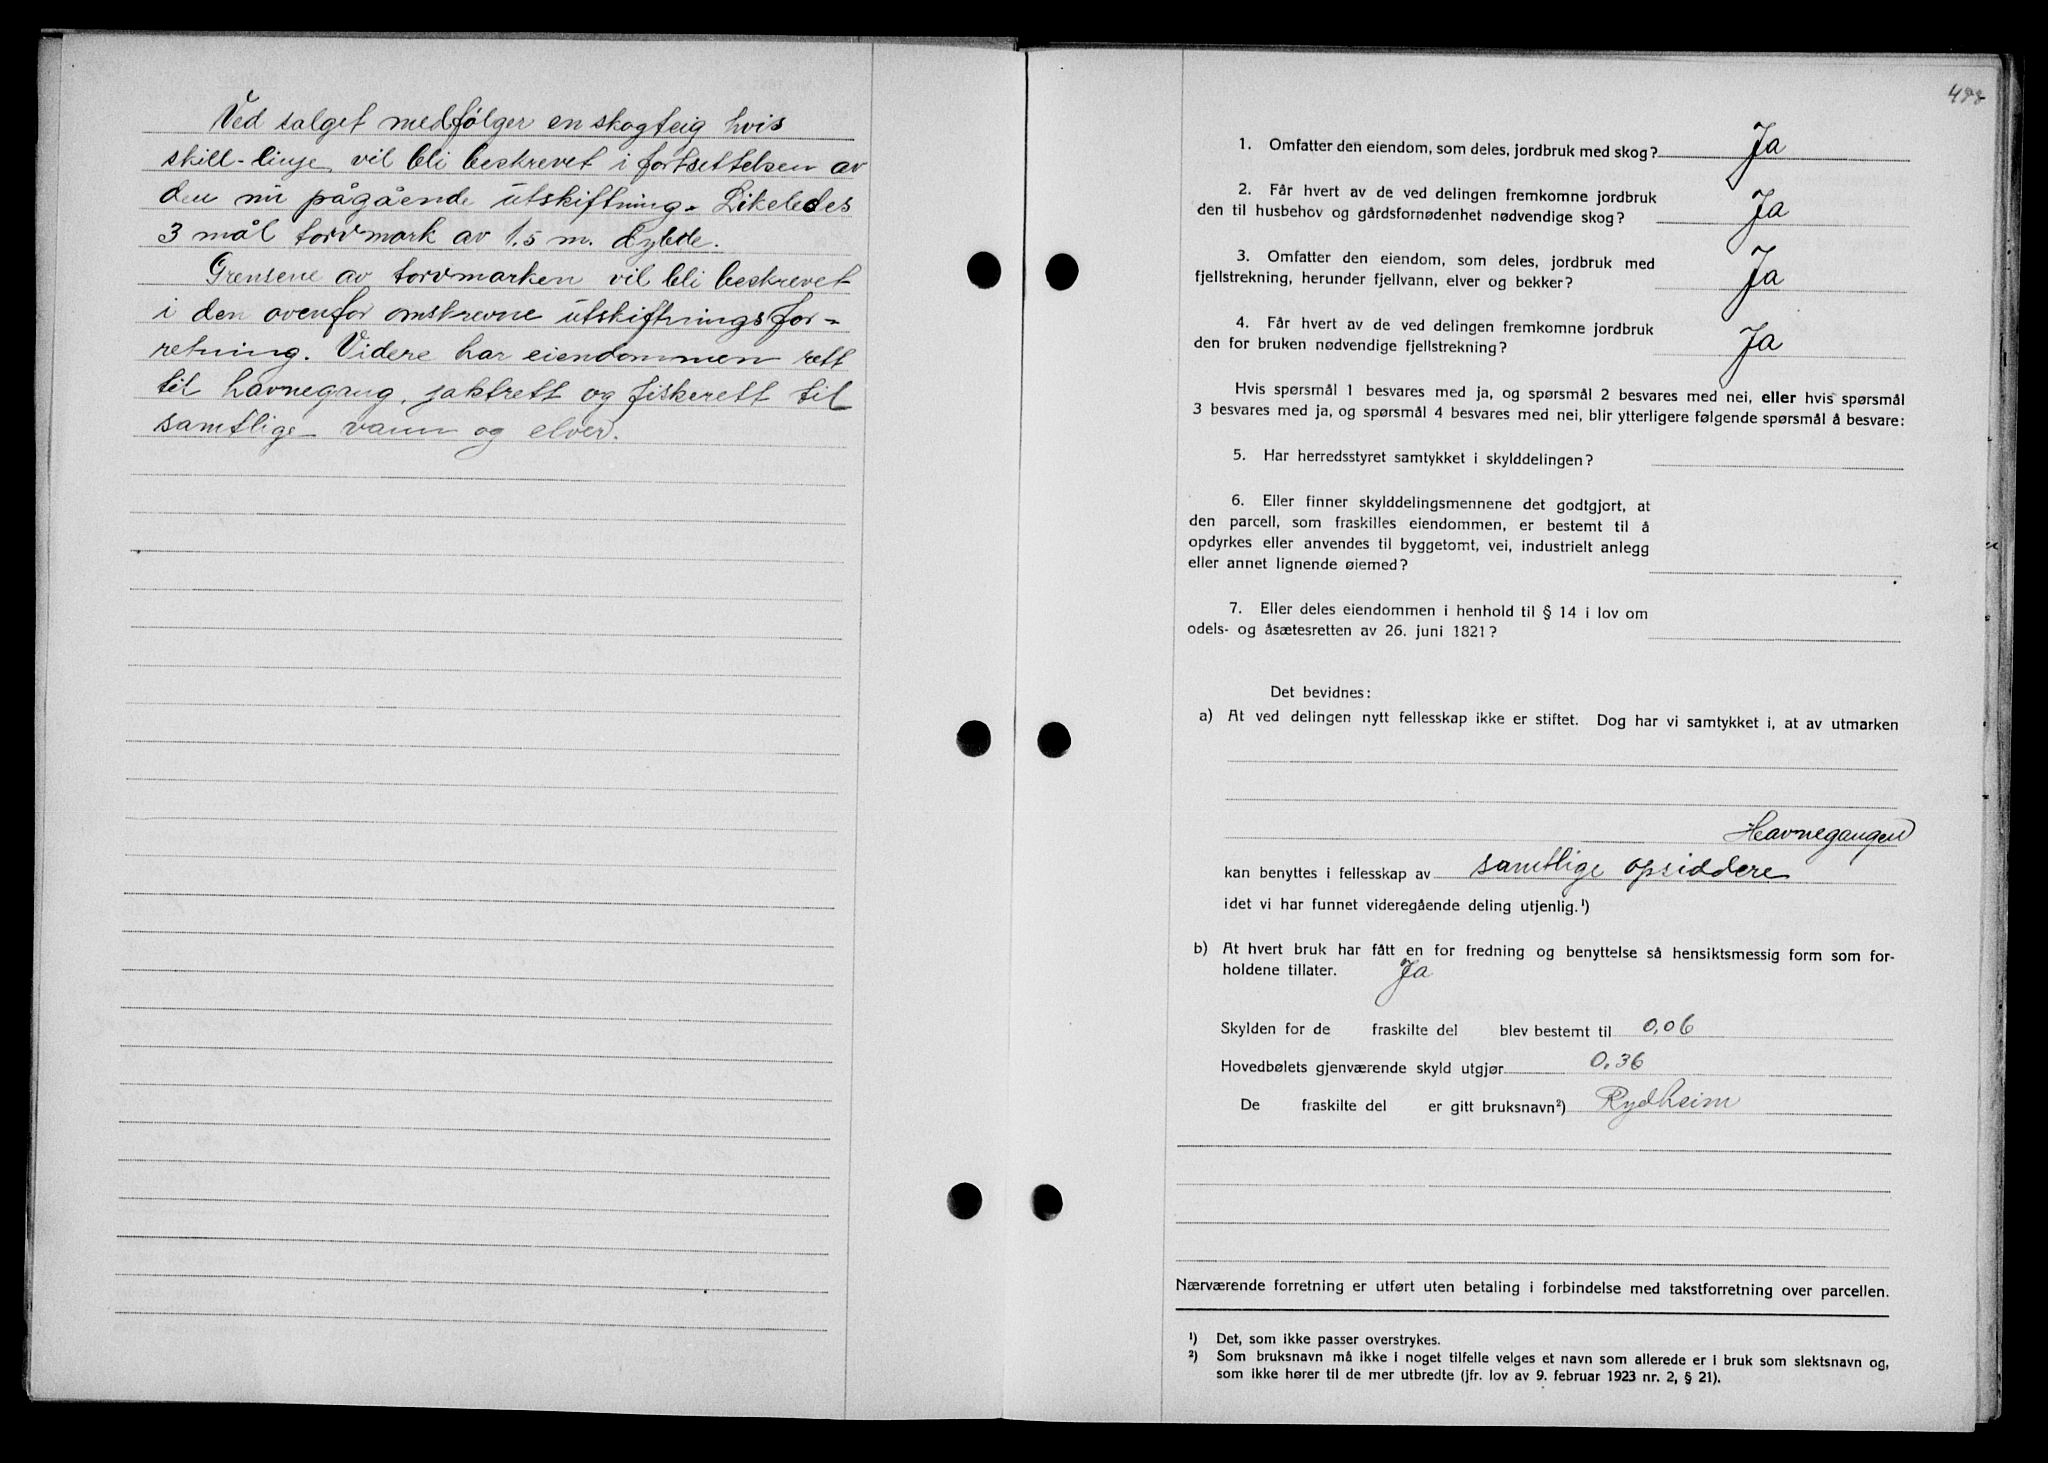 Ved salget medfölger en skogteig hvis
skill-linje vil bli beskrevet i fortsettelsen av
den nu pågående utskiftning. Likeledes
3 mål torvmark av 1.5 m. dybde.
Grensene av torvmarken vil bli beskrevet
i den ovenfor omskrevne utskiftningsfor-
retning. Videre har eiendommen rett
til havnegang, jaktrett og fiskerett til
samtlige vann og elver.
1. Omfatter den eiendom, som deles, jordbruk med skog? Ja
2. Får hvert av de ved delingen fremkomne jordbruk
den til husbehov og gårdsfornødenhet nødvendige skog? Ja
3. Omfatter den eiendom, som deles, jordbruk med
fjellstrekning, herunder fjellvann, elver og bekker? Ja
4. Får hvert av de ved delingen fremkomne jordbruk
den for bruken nødvendige fjellstrekning? Ja
Hvis spørsmål 1 besvares med ja, og spørsmål 2 besvares med nei, eller hvis spørsmål
3 besvares med ja, og spørsmål 4 besvares med nei, blir ytterligere følgende spørsmål å besvare:
5. Har herredsstyret samtykket i skylddelingen?
6. Eller finner skylddelingsmennene det godtgjort, at
den parcell, som fraskilles eiendommen, er bestemt til å
opdyrkes eller anvendes til byggetomt, vei, industrielt anlegg
eller annet lignende øiemed?
7. Eller deles eiendommen i henhold til § 14 i lov om
odels- og åsætesretten av 26. juni 1821?
Det bevidnes:
a) At ved delingen nytt fellesskap ikke er stiftet. Dog har vi samtykket i, at av utmarken
Havnegangen
kan benyttes i fellesskap av samtlige opsiddere
idet vi har funnet videregående deling utjenlig.¹)
b) At hvert bruk har fått en for fredning og benyttelse så hensiktsmessig form som for-
holdene tillater. Ja
Skylden for de fraskilte del blev bestemt til 0,06
Hovedbølets gjenværende skyld utgjør 0,36
De fraskilte del er gitt bruksnavn²) Rydheim
Nærværende forretning er utført uten betaling i forbindelse med takstforretning over parcellen.
¹) Det, som ikke passer overstrykes.
²) Som bruksnavn må ikke i noget tilfelle velges et navn som allerede er i bruk som slektsnavn og,
som ikke hører til de mer utbredte (jfr. lov av 9. februar 1923 nr. 2, § 21).